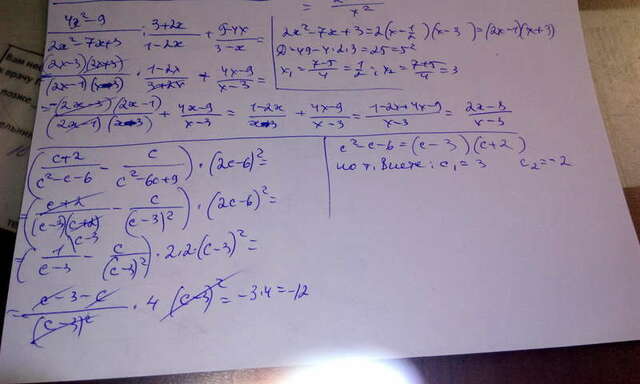 x²
4x²-9 / 2x²-7x+3 : 3+2x / 1-2x + 9-4x / 3-x =
2x²-7x+3=2(x-1/2)(x-3)=(2x-1)(x+3)
D=49-4·2·3=25=5²
x₁=7-5/4=1/2; x₂=7+5/4=3
(2x-3)(2x+3) / (2x-1)(x-3) · 1-2x / 3+2x + 4x-9 / x-3 =
=-(2x-3)(2x-1) / (2x-1)(x-3) + 4x-9 / x-3 = 1-2x / x-3 + 4x-9 / x-3 = 1-2x+4x-9 / x-3 = 2x-8 / x-3
(c+2 / c²-c-6 - c / c²-6c+9) · (2c-6)²=
c²-c-6=(c-3)(c+2)
по т. Виета: c₁=3 c₂=-2
=(c+2 / (c-3)(c+2) - c / (c-3)²) · (2c-6)²=
c-3
=(1 / c-3 - c / (c-3)²) · 2·2·(c-3)²=
=c-3-c / (c-3)² · 4 (c-3)²=-3·4=-12